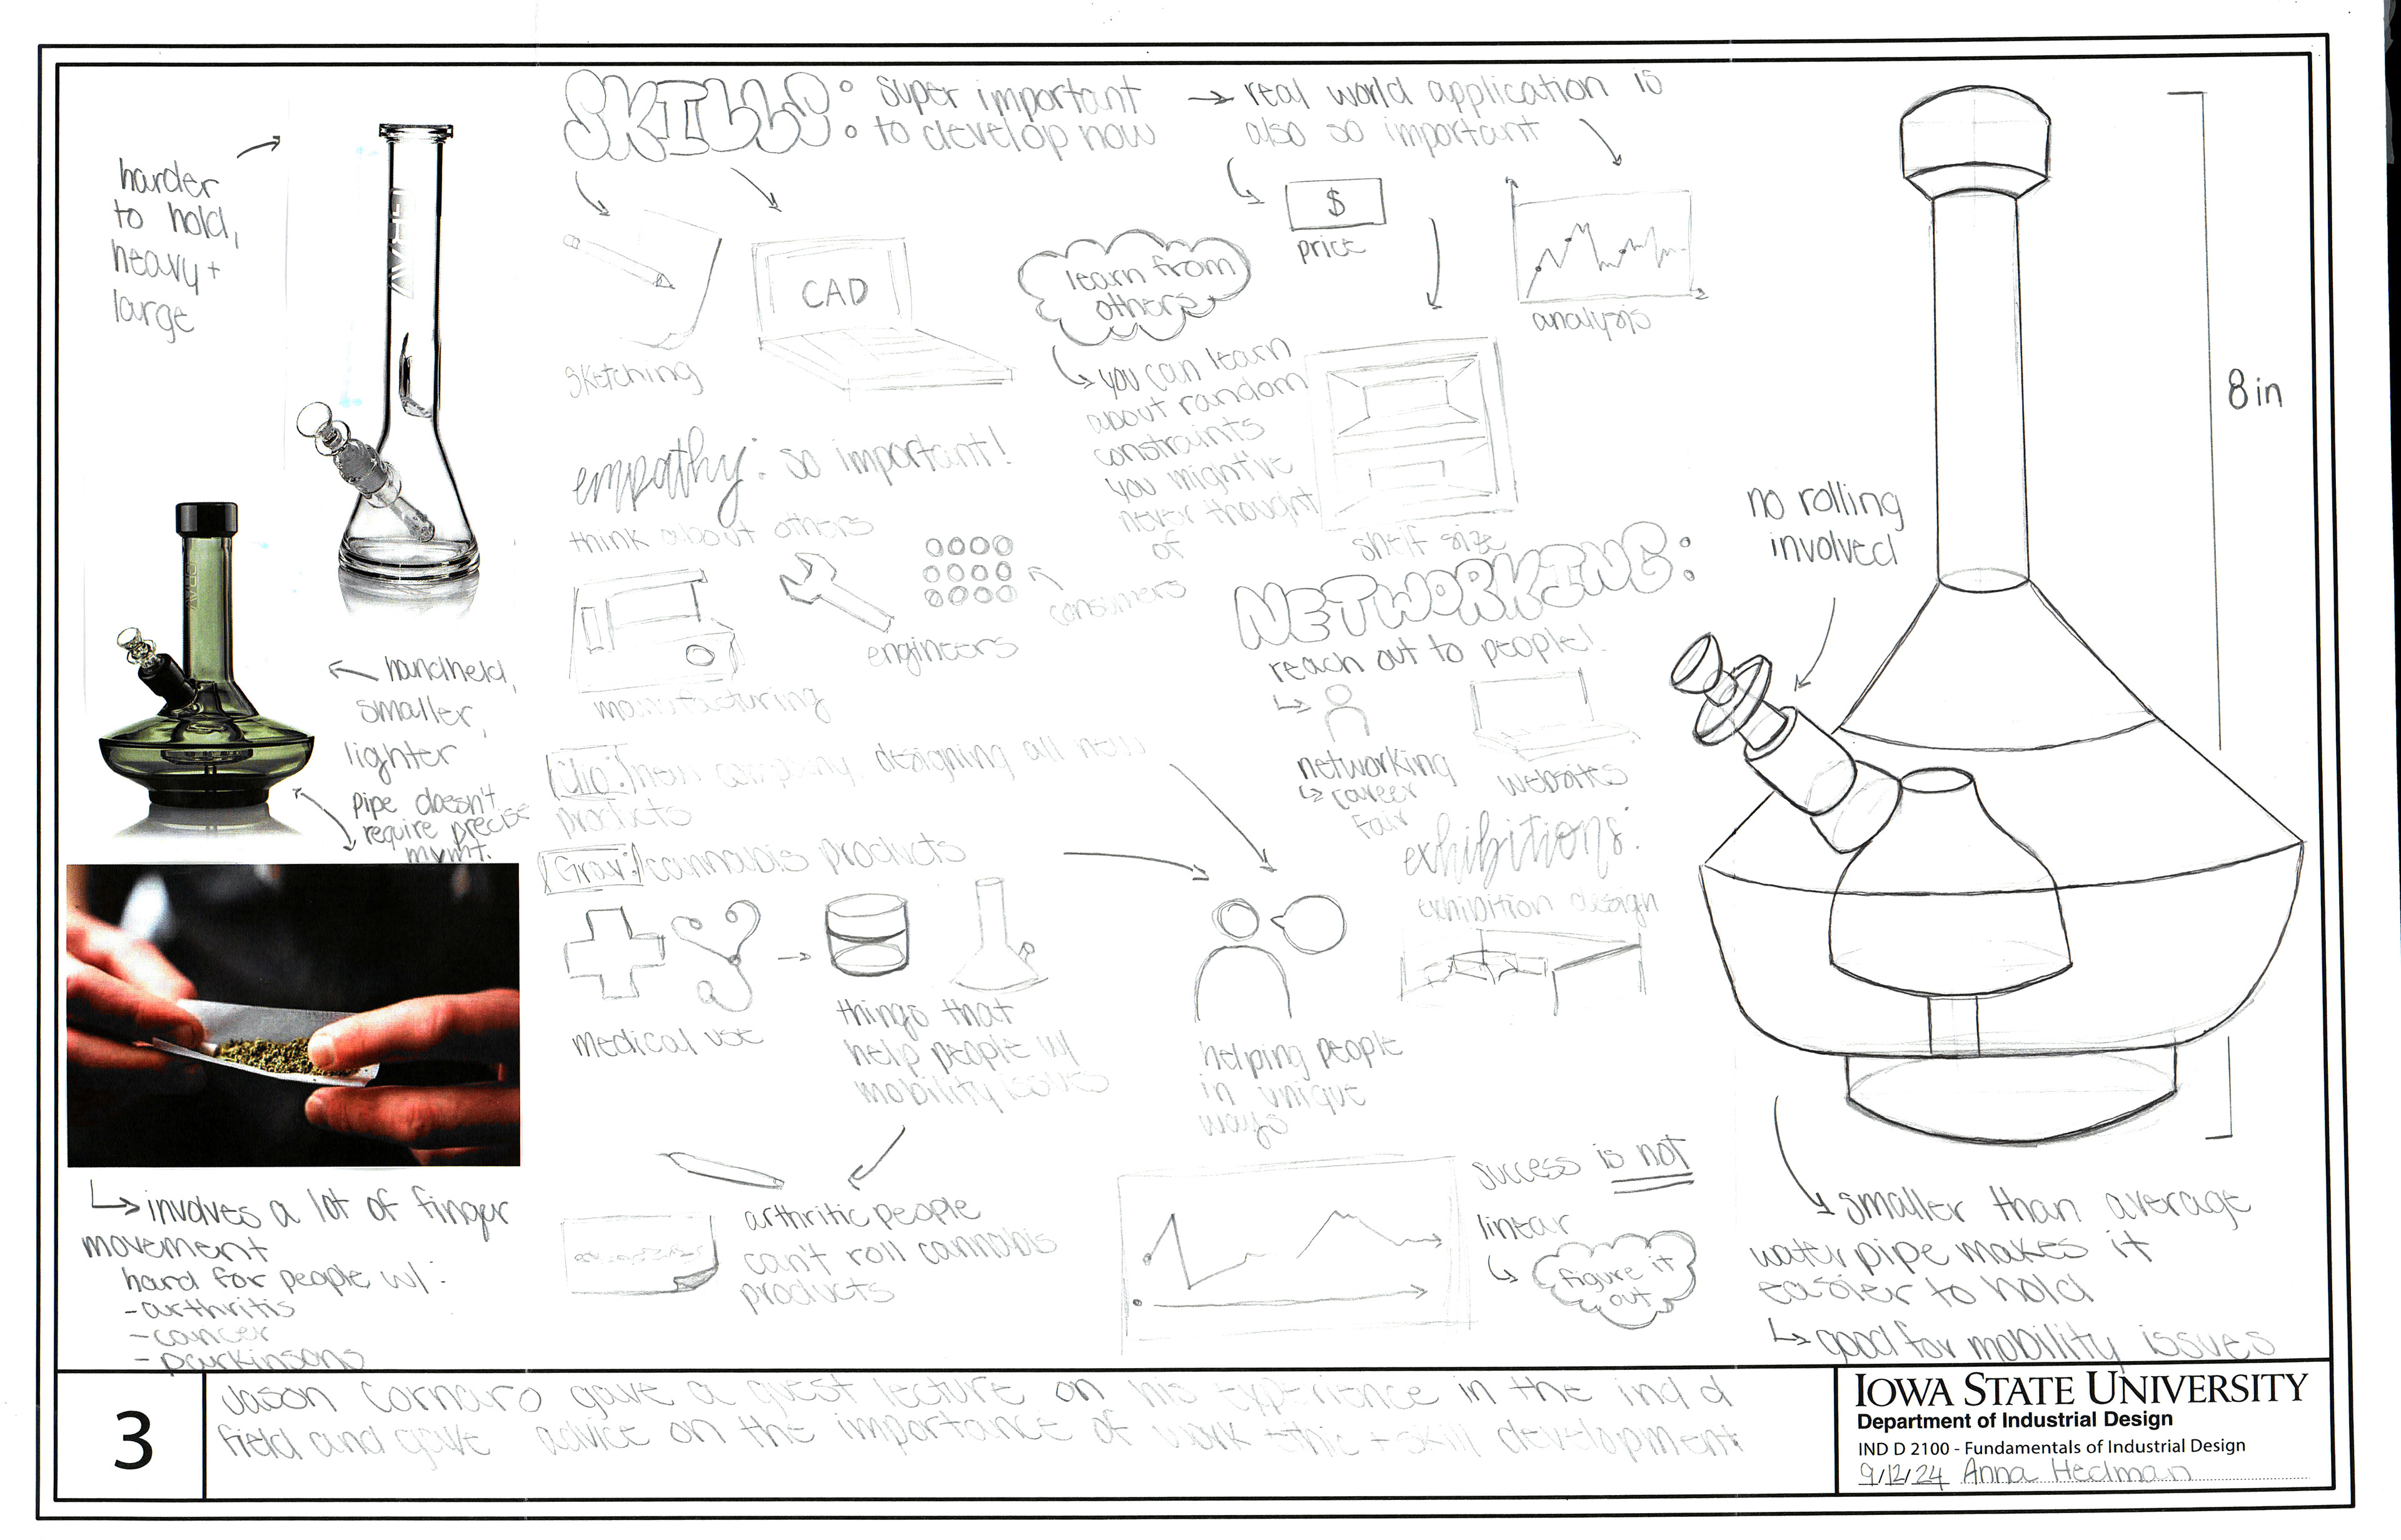 harder
to hold,
heavy +
large
GRAV
handheld,
smaller,
lighter
pipe doesn't
require precise
mvmt.
involves a lot of finger
movement
hard for people w/:
- arthritis
- cancer
- parkinsons
SKILLS: super important
to develop now
→ real world application is
also so important
sketching
CAD
learn from
others
you can learn
about random
constraints
you might've
never thought
of
$
price
analysis
shelf size
empathy: so important!
think about others
manufacturing
engineers
consumers
NETWORKING:
reach out to people!
networking
career
fair
websites
exhibitions:
exhibition design
Clio: new company, designing all new
products
Grav: cannabis products
medical use
things that
help people w/
mobility issues
helping people
in unique
ways
arthritic people
can't roll cannabis
products
success is not
linear
figure it
out
8 in
no rolling
involved
smaller than average
water pipe makes it
easier to hold
good for mobility issues
3
Jason Cornaro gave a guest lecture on his experience in the ind d
field and gave advice on the importance of work ethic + skill development
IOWA STATE UNIVERSITY
Department of Industrial Design
IND D 2100 - Fundamentals of Industrial Design
9/12/24 Anna Hedman